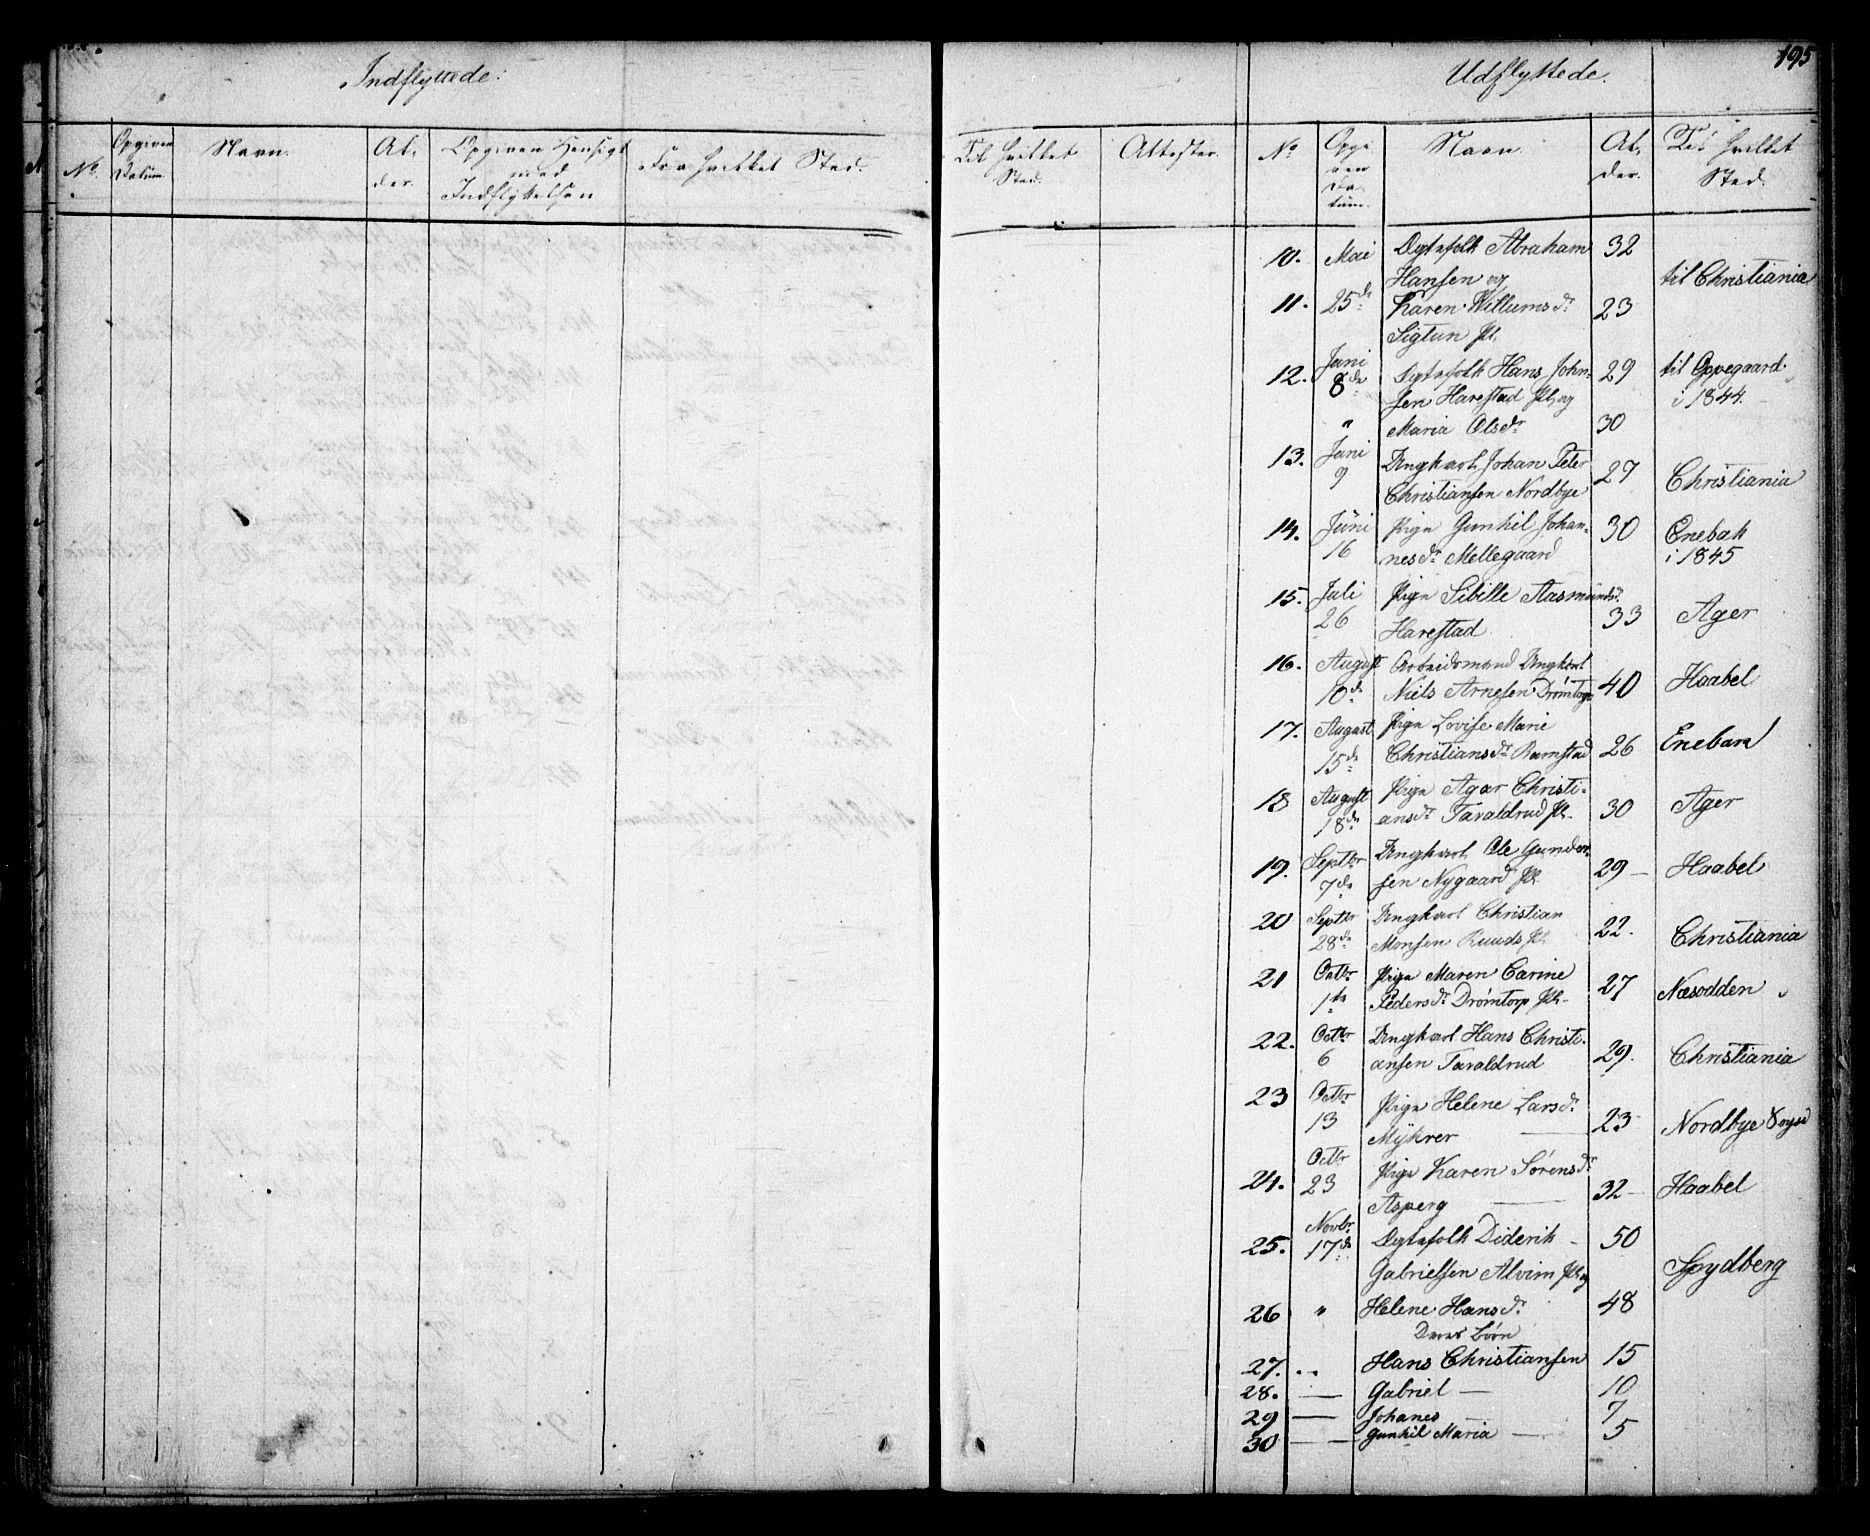 195
Indflyttede.
Udflyttede.
No.
Opgiven Datum
Navn.
Alder.
Opgiven Hensigt med Indflyttelsen
Fra hvilket Sted.
Til hvilket Sted.
Attester.
No
Opgiven Datum.
Navn.
Alder.
Til hvilket Sted.
10. Mai Egtefolk Abraham 32
Hansen og til Christiania
11. 25de Karen Willumsdr 23
Sigtun Pl.
12. Juni 8de Egtefolk Hans John- 29 til Oppegaard
sen Harestad Pl. og i 1844.
" Maria Olsdr 30
13. Juni 9 Ungkarl Johan Peter 27 Christiania
Christiansen Nordbye
14. Juni 16 Pige Gunhil Johan- 30 Enebak
nesdr Mellegaard i 1845
15. Juli 26 Pige Sibille Aasmundsdr 33 Ager
Harestad
16. August 10de Arbeidsmand Ungkarl 40 Haabel
Niels Arnesen Drømtorp
17. August 15de Pige Lovise Marie 26 Enebak
Christiansdr Ramstad
18 August 18de Pige Agar Christi- 30 Ager
ansdr Taraldrud Pl.
19. Septbr 7de Ungkarl Ole Gunder- 29 Haabel
sen Nygaard Pl.
20 Septbr 28de Ungkarl Christian 22. Christiania
Monsen Ruuds Pl.
21 Octbr 1te Pige Maren Carine 27 Næsodden
Pedersdr Drømtorp Pl.
22. Octbr 6 Ungkarl Hans Christi- 29. Christiania
ansen Taraldrud
23 Octbr 13 Pige Helene Larsdr 23 Nordbye Sogn
Mykrer
24. Octbr 23 Pige Karen Sørensdr 32 Haabel
Asperg
25. Novbr 17de Egtefolk Diderik 50
Gabrielsen Alvim Pl. og Spydberg
26 " Helene Hansdr 48
Deres Børn
27. Hans Christiansen 15
28. Gabriel 10
29 Johanes 7
30 Gunhil Maria 5